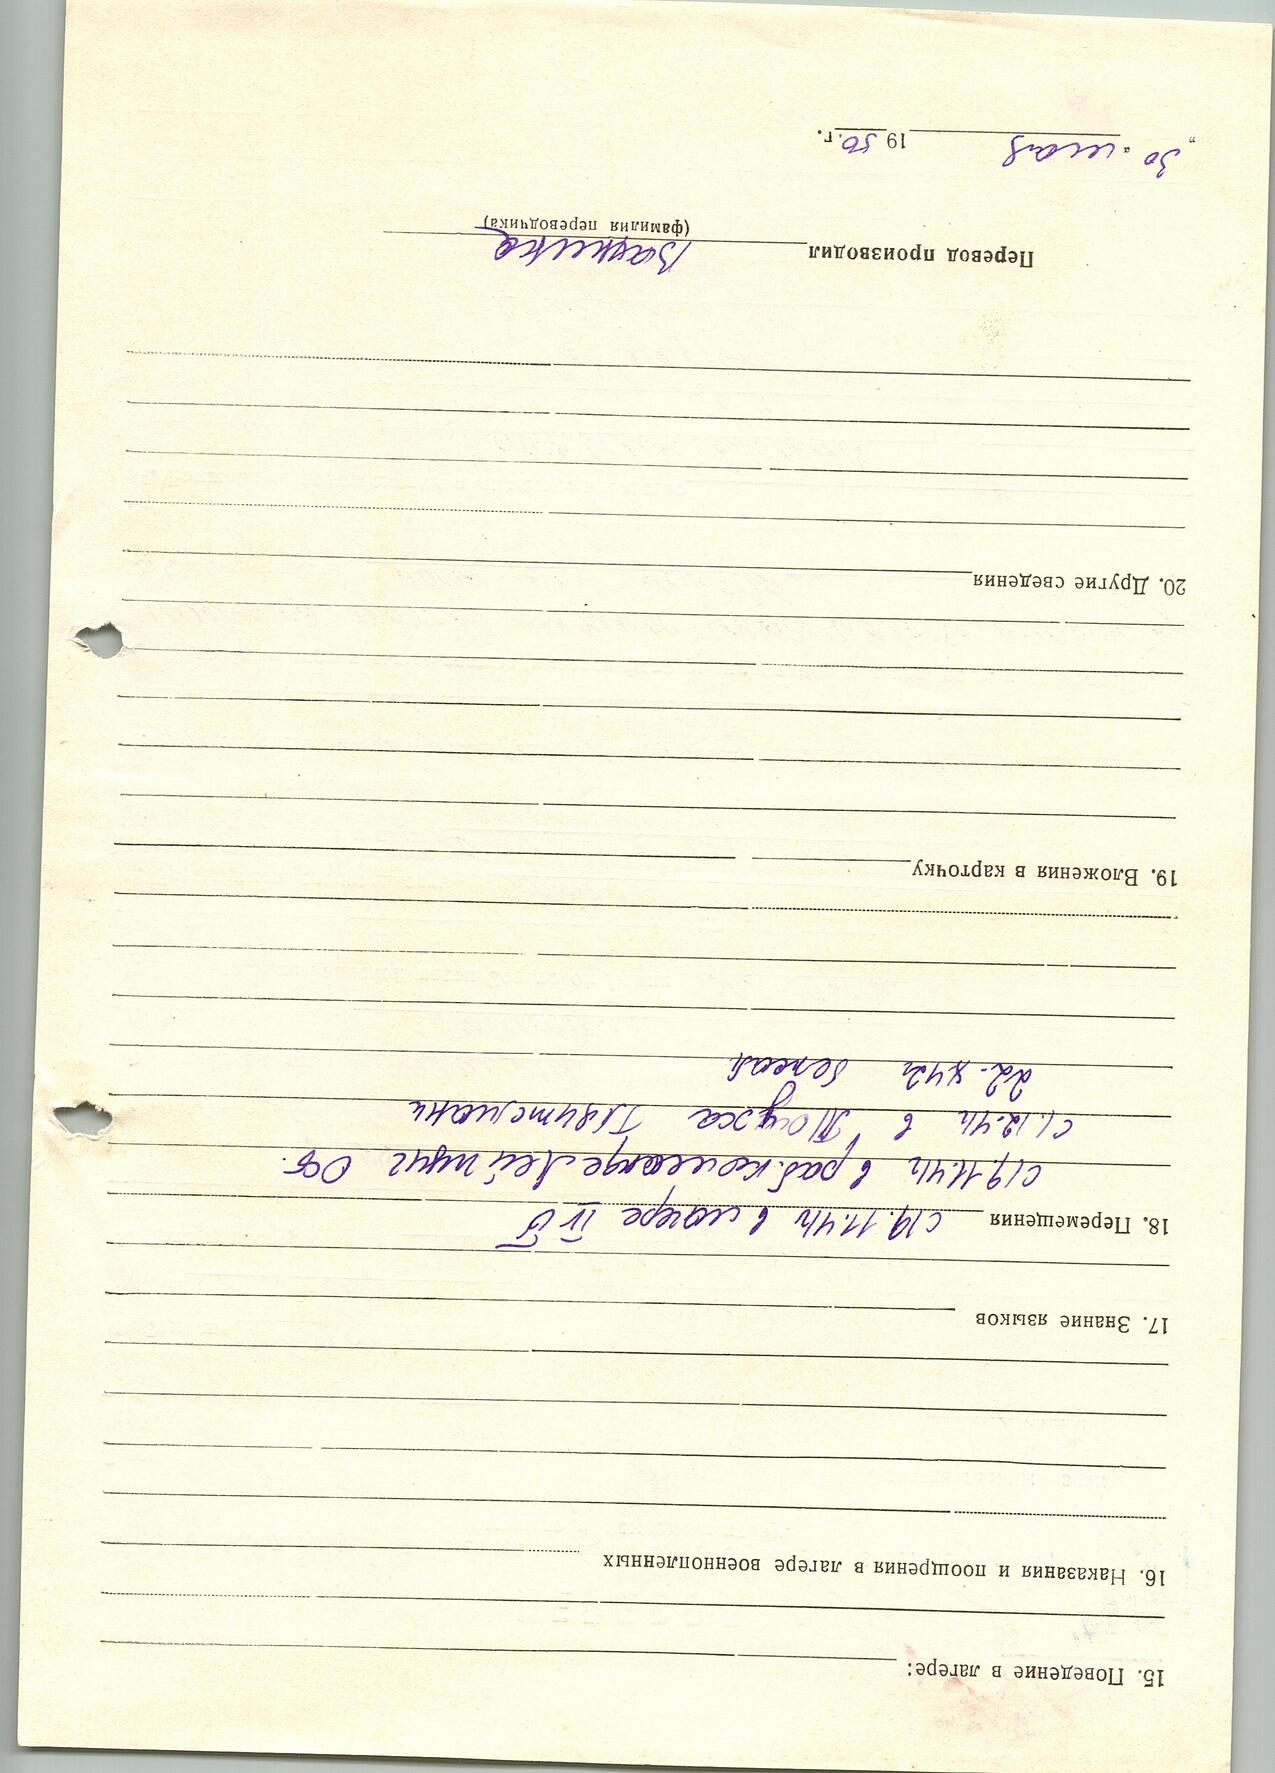 15. Поведение в лагере:
16. Наказания и поощрения в лагере военнопленных
17. Знание языков
18. Перемещения с 19.11.41г в лагере IV Б
с 19.11.41г в раб. команде Лейпциг
с 1.12.41г в
22.8.42г бежал
19. Вложения в карточку
20. Другие сведения
Перевод производил
(фамилия переводчика)
„30“ мая 1950 г.